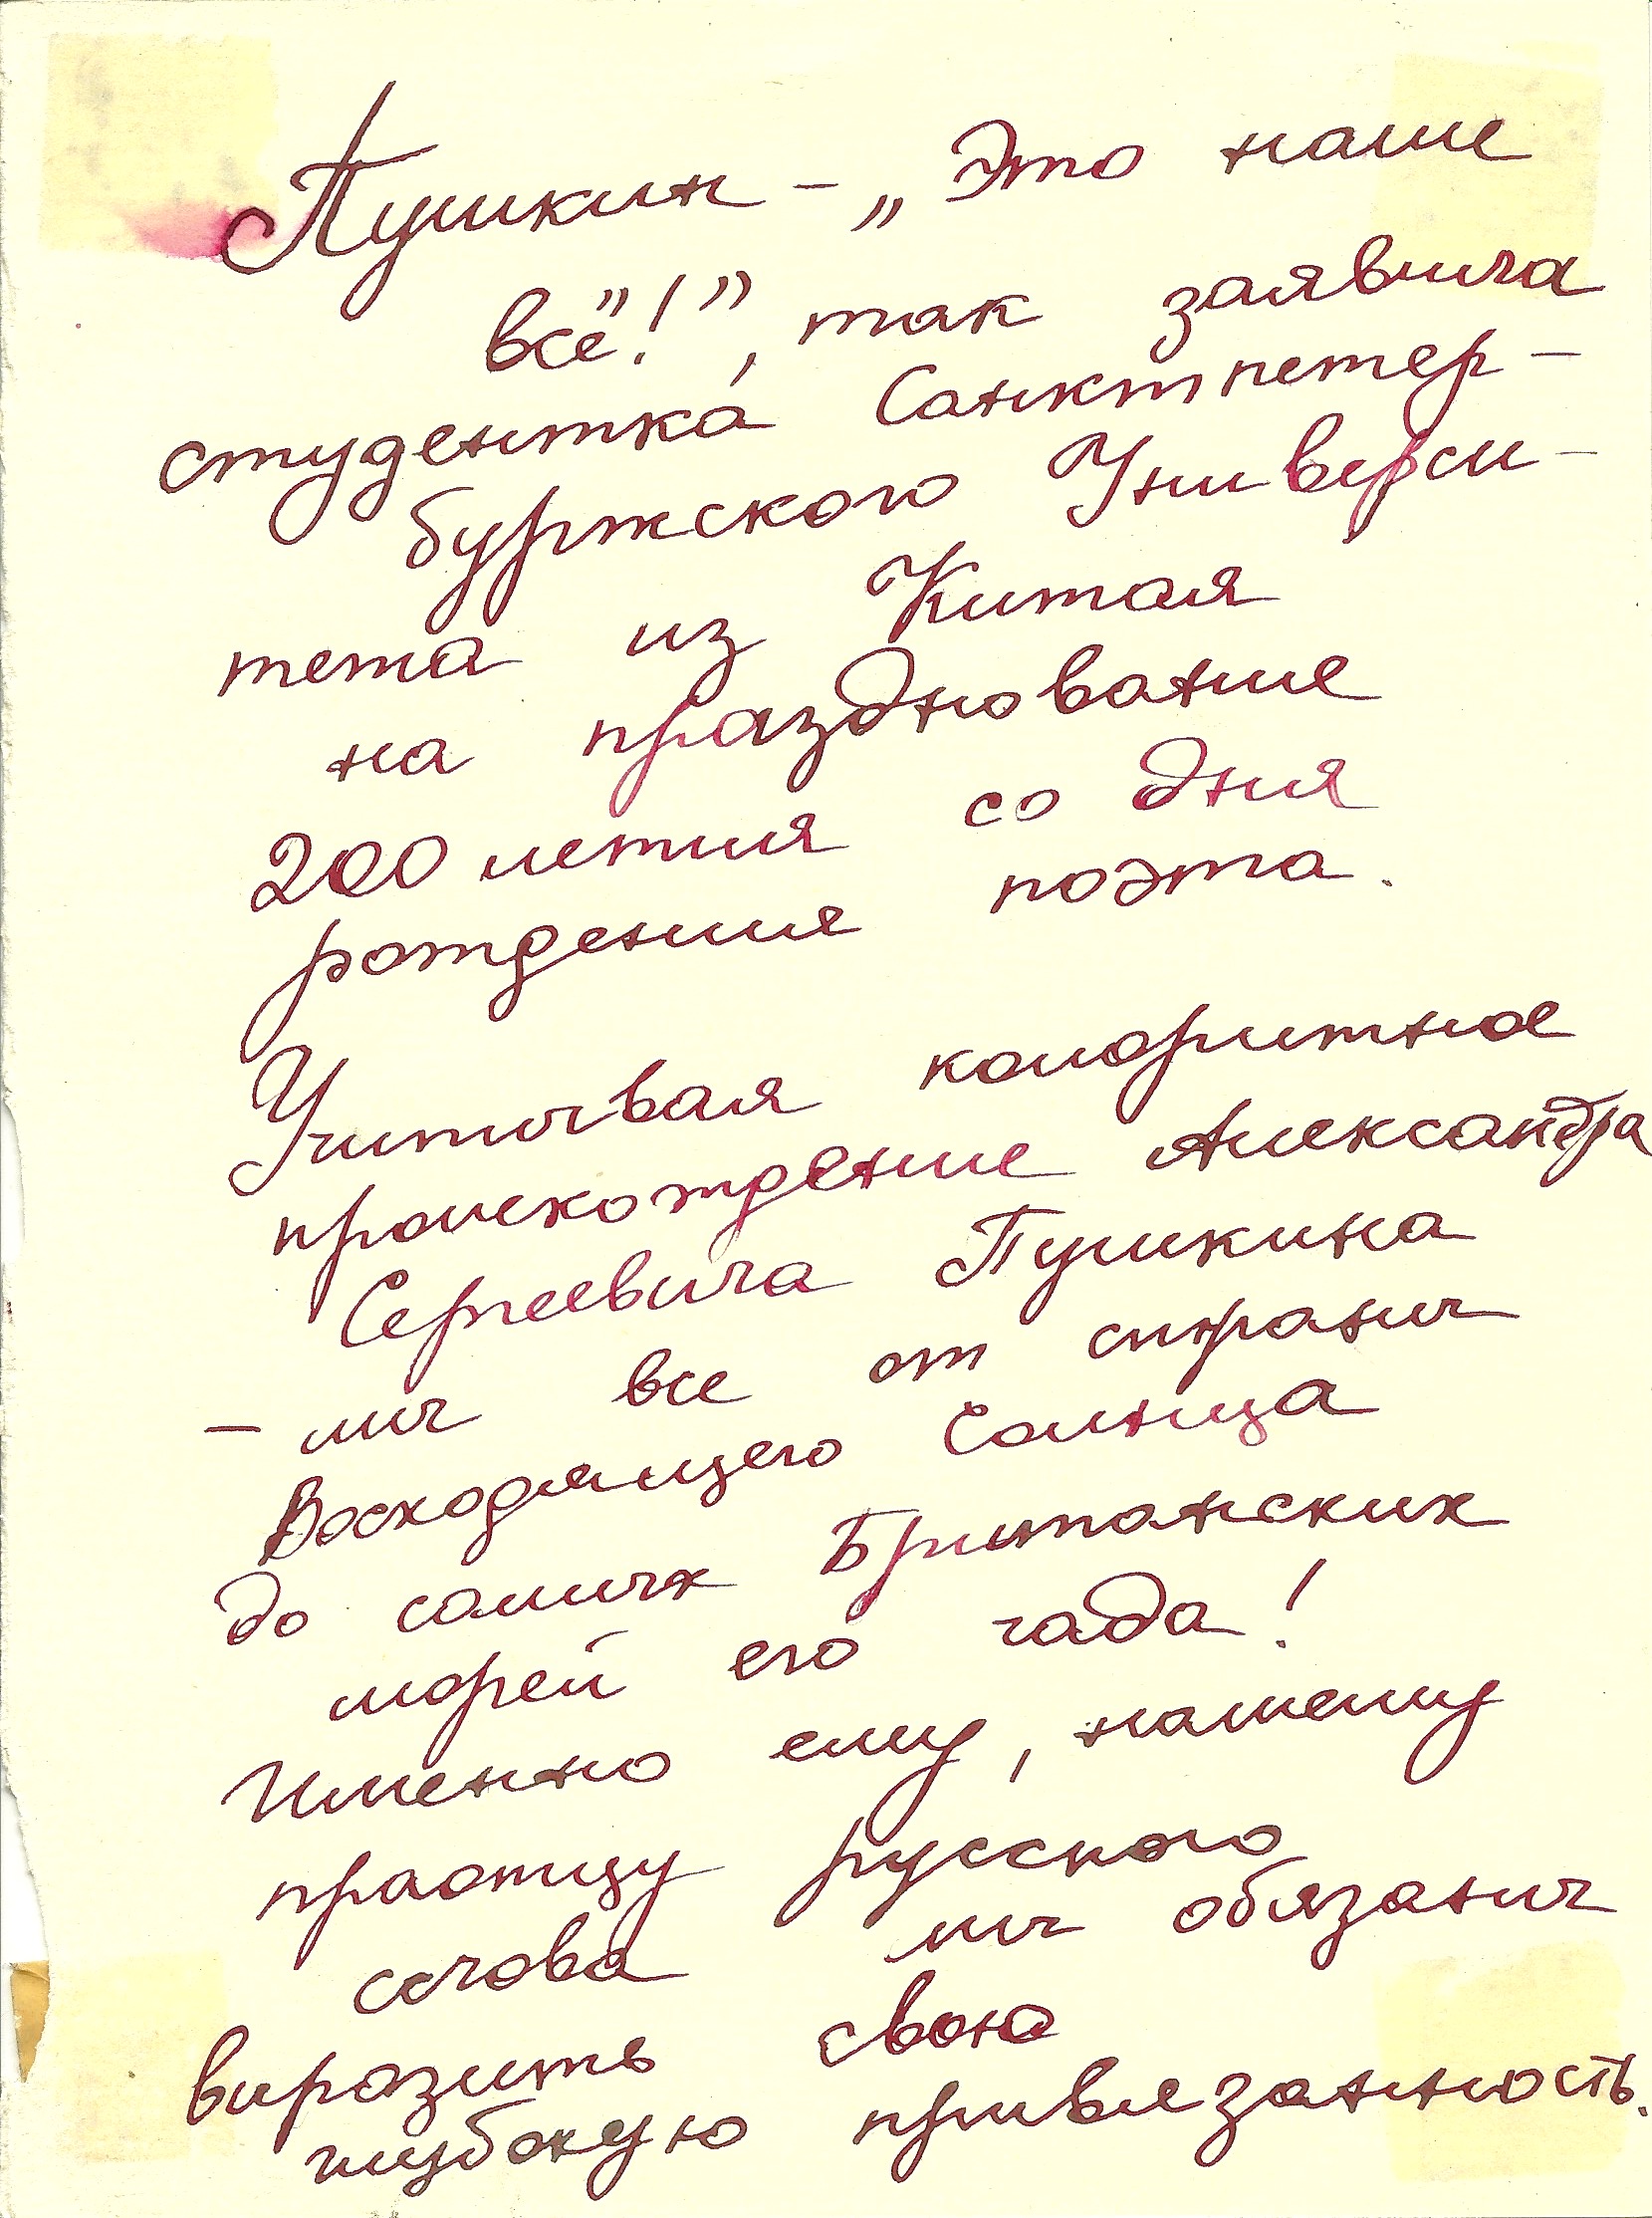 Пушкин – „Это наше
всё"!", так заявила
студентка Санктпетер-
буржского Универси-
тета из Китая
на празднование
200 летия со дня
рождение поэта.
Учитывая колоритное
происхождение Александра
Сергеевича Пушкина
– мы все от страны
Восходящего Солнца
до самых Британских
морей его чада!
Именно ему, нашему
праотцу русского
слова мы обязаны
выразить свою
глубокую привязанность.